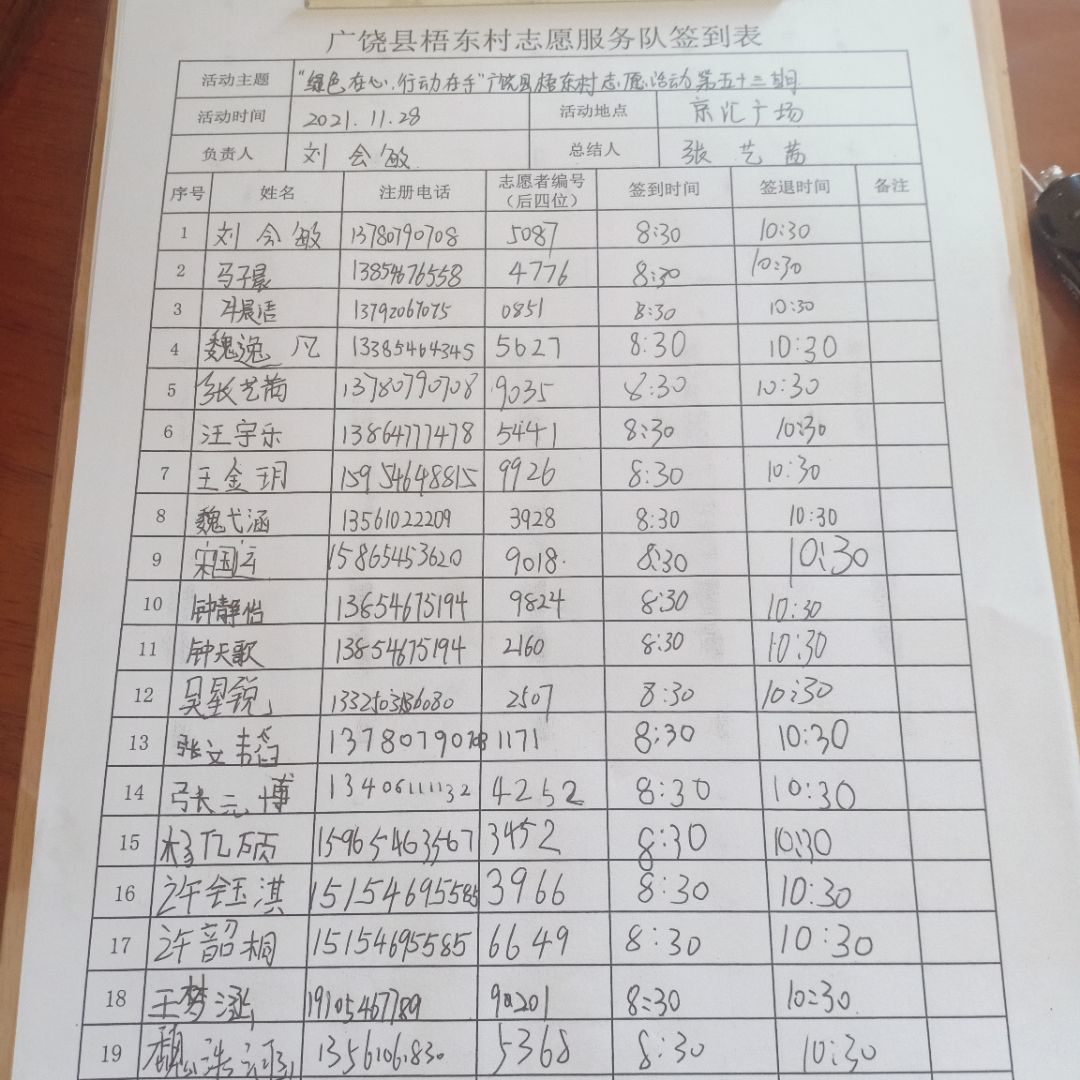 广饶县梧东村志愿服务队签到表
活动主题 “绿色在心、行动在手”广饶县梧东村志愿活动第五十三期
活动时间 2021.11.28 活动地点 京汇广场
负责人 刘会敏 总结人 张艺茜
序号 姓名 注册电话 志愿者编号（后四位） 签到时间 签退时间 备注
1 刘会敏 13780790708 5087 8:30 10:30
2 马子晨 13854676558 4776 8:30 10:30
3 晨语 13792067075 0851 8:30 10:30
4 魏逸凡 13385464345 5627 8:30 10:30
5 张艺茜 13780790708 9035 8:30 10:30
6 汪宇乐 13864777478 5441 8:30 10:30
7 王金玥 15954648815 9926 8:30 10:30
8 魏弋涵 13561022209 3928 8:30 10:30
9 宋国运 15865453620 9018 8:30 10:30
10 钟静怡 13854675194 9824 8:30 10:30
11 钟天歌 13854675194 2160 8:30 10:30
12 吴星锐 2507 8:30 10:30
13 张文韬 13780790708 1171 8:30 10:30
14 张元博 13406111132 4252 8:30 10:30
15 杨亿硕 15965463567 3452 8:30 10:30
16 许钰淇 15154695585 3966 8:30 10:30
17 许韶桐 15154695585 6649 8:30 10:30
18 王梦涵 19105467789 8:30 10:30
19 5368 8:30 10:30